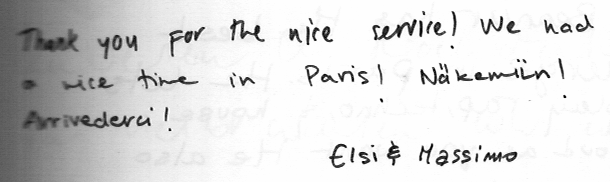 Thank you for the nice service! We had
a nice time in Paris! Näkemiin!
Arrivederci!
Elsi & Massimo